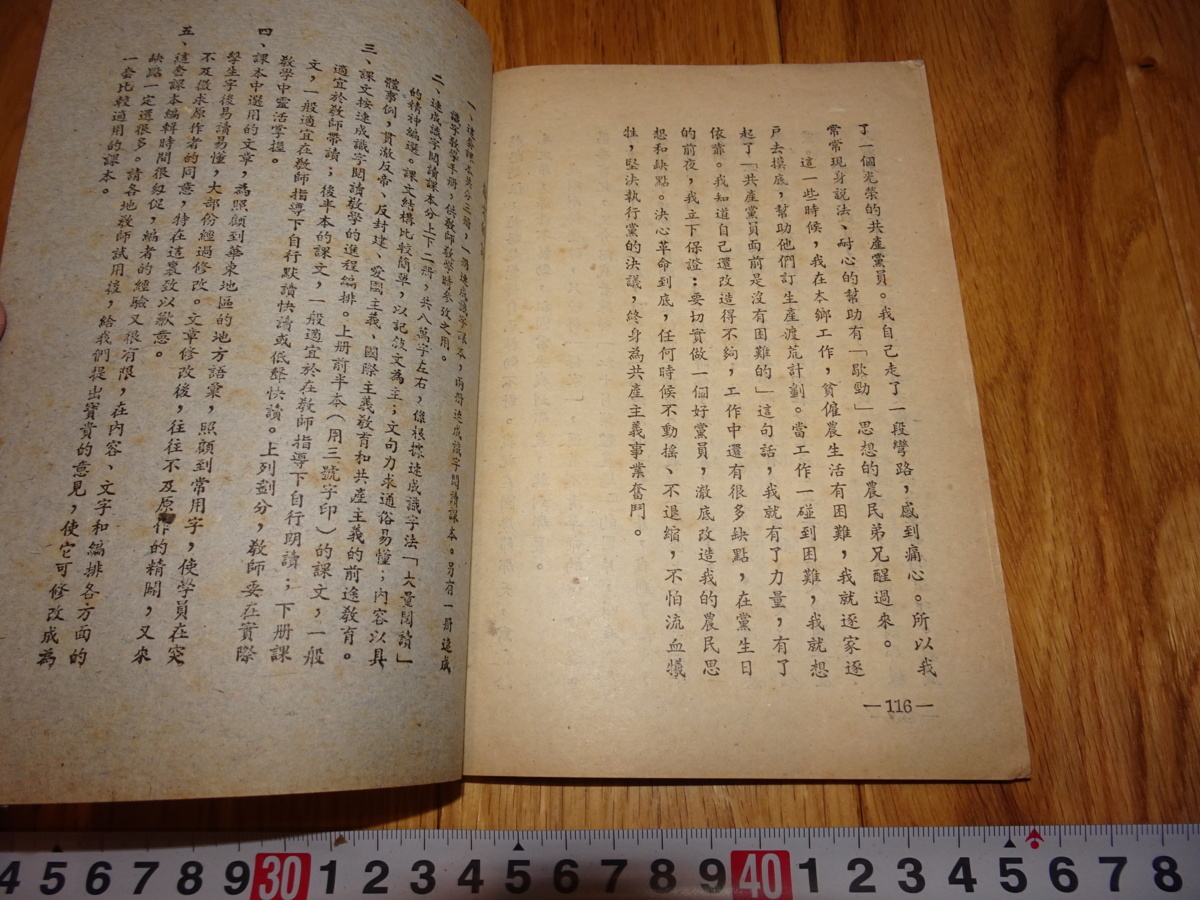 了一個光榮的共產黨員。我自己走了一段彎路，感到痛心。所以我
常常現身說法、耐心的幫助有「歇勁」思想的農民弟兄醒過來。
這一些時候，我在本鄉工作，貧僱農生活有困難，我就逐家逐
戶去摸底，幫助他們訂生產渡荒計劃。當工作一碰到困難，我就想
起了「共產黨員面前是沒有困難的」這句話，我就有了力量，有了
依靠。我知道自己還改造得不夠，工作中還有很多缺點，在黨生日
的前夜，我立下保證：要切實做一個好黨員，澈底改造我的農民思
想和缺點。決心革命到底，任何時候不動搖、不退縮，不怕流血犧
牲，堅決執行黨的決議，終身為共產主義事業奮鬥。
—116—
一、這套課本共分三種，一冊速成識字課本，兩冊速成識字閱讀課本。另有一冊速成
識字教學手冊，供教師教學時參攷之用。
二、速成識字閱讀課本分上下二冊，共八萬字左右，係根據速成識字法「大量閱讀」
的精神編選。課文結構比較簡單，以記敘文為主；文句力求通俗易懂；內容以具
體事例，貫澈反帝、反封建、愛國主義、國際主義教育和共產主義的前途教育。
三、課文按速成識字閱讀教學的進程編排。上冊前半本（用三號字印）的課文，一般
適宜於教師帶讀；後半本的課文，一般適宜於在教師指導下自行朗讀；下冊課
文，一般適宜在教師指導下自行默讀快讀或低聲快讀。上列劃分，教師要在實際
教學中靈活掌握。
四、課本中選用的文章，為照顧到華東地區的地方語彙，照顧到常用字，使學員在突
擊生字後易讀易懂，大部份經過修改。文章修改後，往往不及原作的精闢，又來
不及徵求原作者的同意，特在這裏致以歉意。
五、這套課本編輯時間很匆促，編者的經驗又很有限，在內容、文字和編排各方面的
缺點一定還很多。請各地教師試用後，給我們提出寶貴的意見，使它可修改成為
一套比較適用的課本。
4 5 6 7 8 9 30 1 2 3 4 5 6 7 8 9 40 1 2 3 4 5 6 7 8